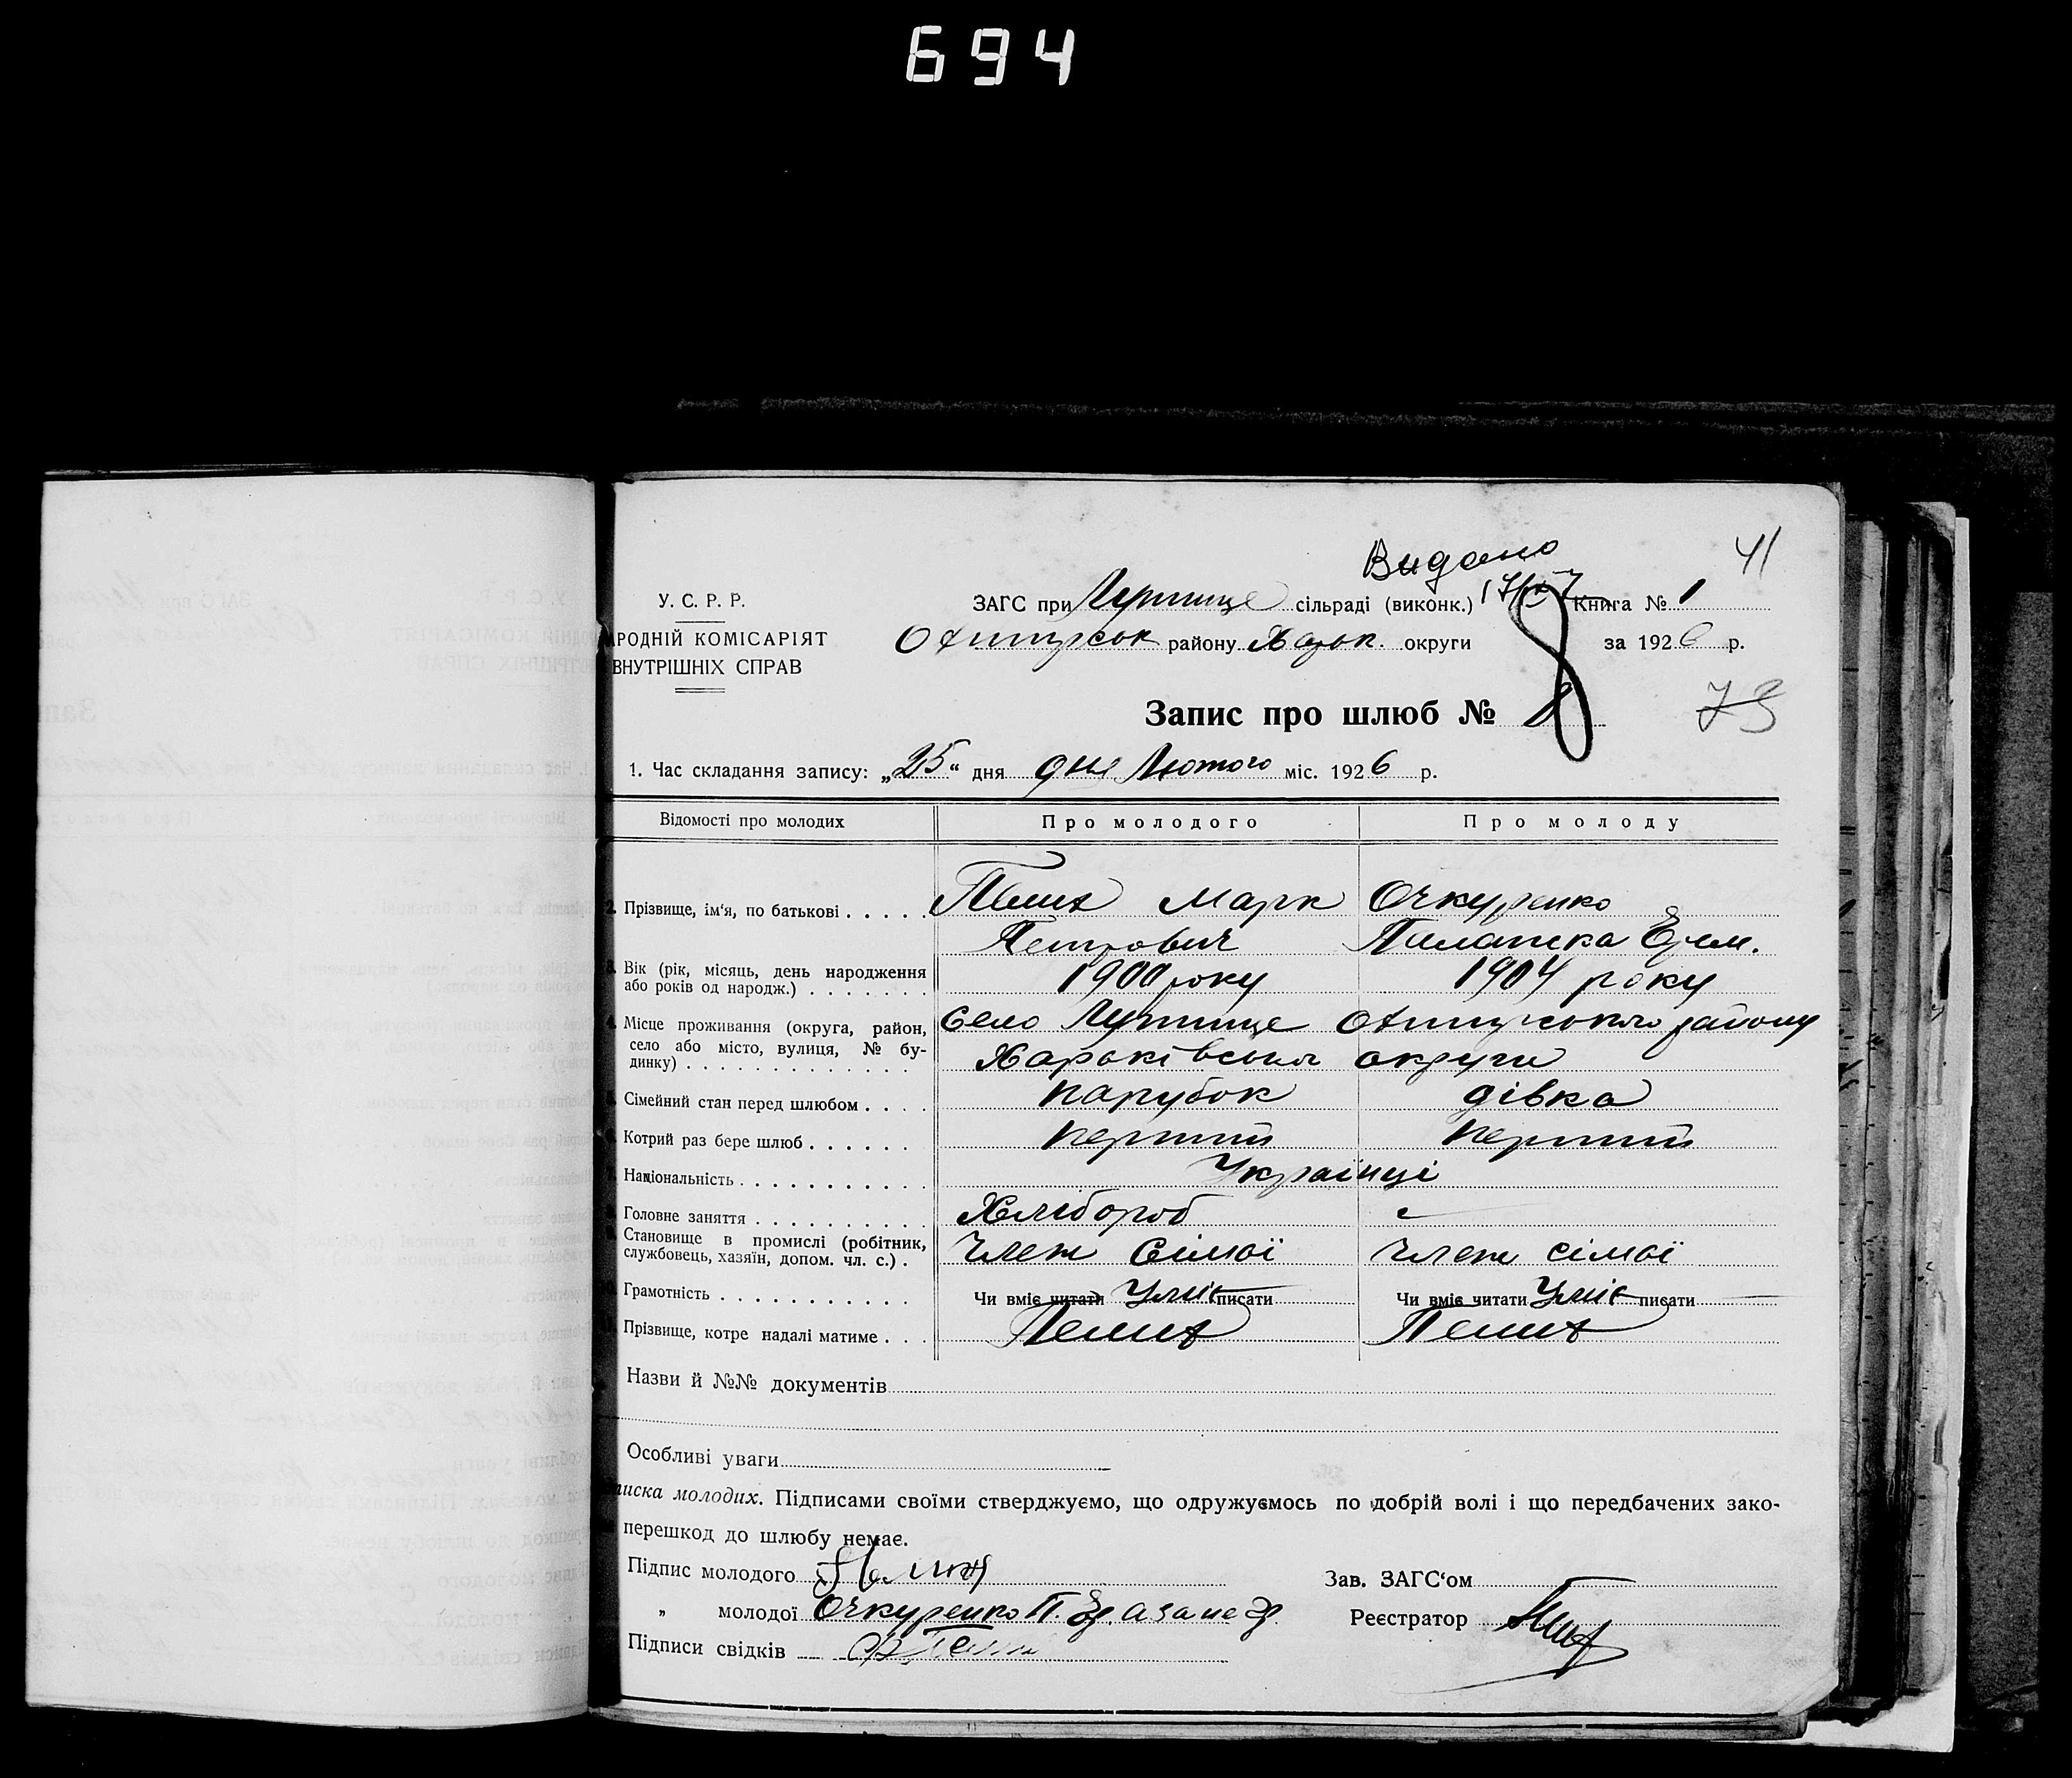 694
Видано
41
У. С. Р. Р.
ЗАГС при Лутище сільраді (виконк.) Книга № 1
РОДНІЙ КОМІСАРІЯТ
Охтирськ району Харьк. округи за 1926 р.
ВНУТРІШНІХ СПРАВ
8
Запис про шлюб № 8 73
1. Час складання запису: „25“ дня дня Лютого міс. 1926 р.
Відомості про молодих Про молодого Про молоду
2. Прізвище, ім'я, по батькові . . . . . Марк Очкуренко
Петрович Палажка
3. Вік (рік, місяць, день народження 1900 року 1904 року
або років од народж.) . . . . . . .
4. Місце проживання (округа, район, село Лутище Охтирського району
село або місто, вулиця, № бу- Харьківськоі округи
динку) . . . . . . . . . . . . .
Сімейний стан перед шлюбом . . . . парубок дівка
Котрий раз бере шлюб . . . . . . перший перший
Національність . . . . . . . . . . . Українці
Головне заняття . . . . . . . . . . Хлібороб
Становище в промислі (робітник,
службовець, хазяїн, допом. чл. с.) . Член сімої член сімої
Грамотність . . . . . . . . . . . Чи вміє читати Уміє писати Чи вміє читати Уміє писати
Прізвище, котре надалі матиме . . .
Назви й №№ документів
Особливі уваги
иска молодих. Підписами своїми стверджуємо, що одружуємось по добрій волі і що передбачених зако-
перешкод до шлюбу немає.
Підпис молодого Зав. ЗАГС‘ом
„ молодої Очкуренко П. Реєстратор
Підписи свідків